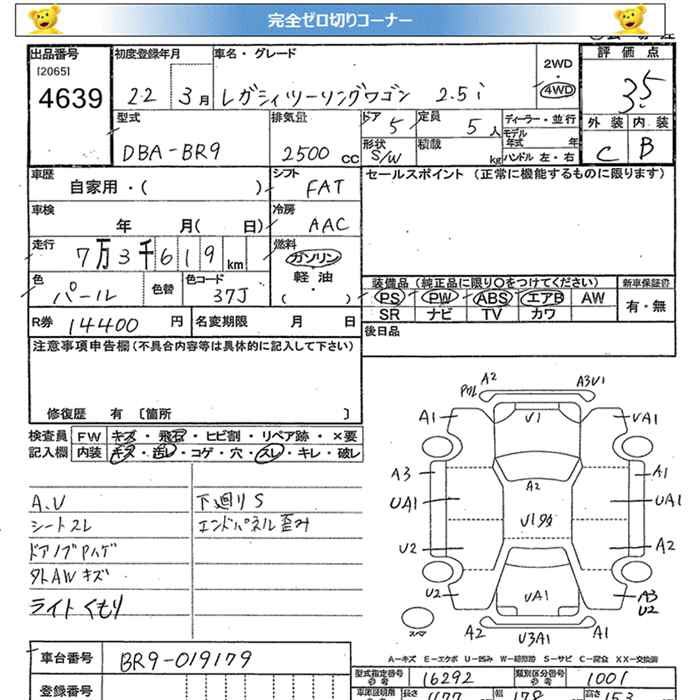 完全ゼロ切りコーナー
出品番号 初度登録年月 車名・グレード 2WD 評価点
[2065] ・
4639 22 3月 レガシィツーリングワゴン 2.5i 4WD 3.5
型式 排気量 ドア 5 定員 5人 ディーラー・並行 外装 内装
モデル年式 年
DBA-BR9 2500cc 形状 S/W 積載 kg ハンドル 左・右 C B
車歴 自家用・( ) シフト FAT セールスポイント (正常に機能するものに限ります)
車検 年 月( 日) 冷房 AAC
走行 7万3千619km 燃料 ガソリン
・
軽油
( )
色 パール 色替 色コード 37J
装備品 (純正品に限り○をつけてください) 新車保証書
PS PW ABS エアB AW 有・無
SR ナビ TV カワ
R券 14400円 名変期限 月 日 後日品
注意事項申告欄 (不具合内容等は具体的に記入して下さい)
修復歴 有 〔箇所 〕
検査員 FW キズ・飛石・ヒビ割・リペア跡・×要
記入欄 内装 キズ・汚レ・コゲ・穴・スレ・キレ・破レ
A.V 下廻りS
シートスレ エンドパネル歪み
ドアノブPハゲ
外AWキズ
ライトくもり
A2 A3U1
A1 U1 UA1
A3 A2 A1
UA1 UA1
U2 A2
U2 UA1 A3
U2
スペア A2 U3A1 A1
A-キズ E-エクボ U-凹み W-補修跡 S-サビ C-腐食 XX-交換済
車台番号 BR9-019179
型式指定番号 16292 類別区分番号 1001
登録番号